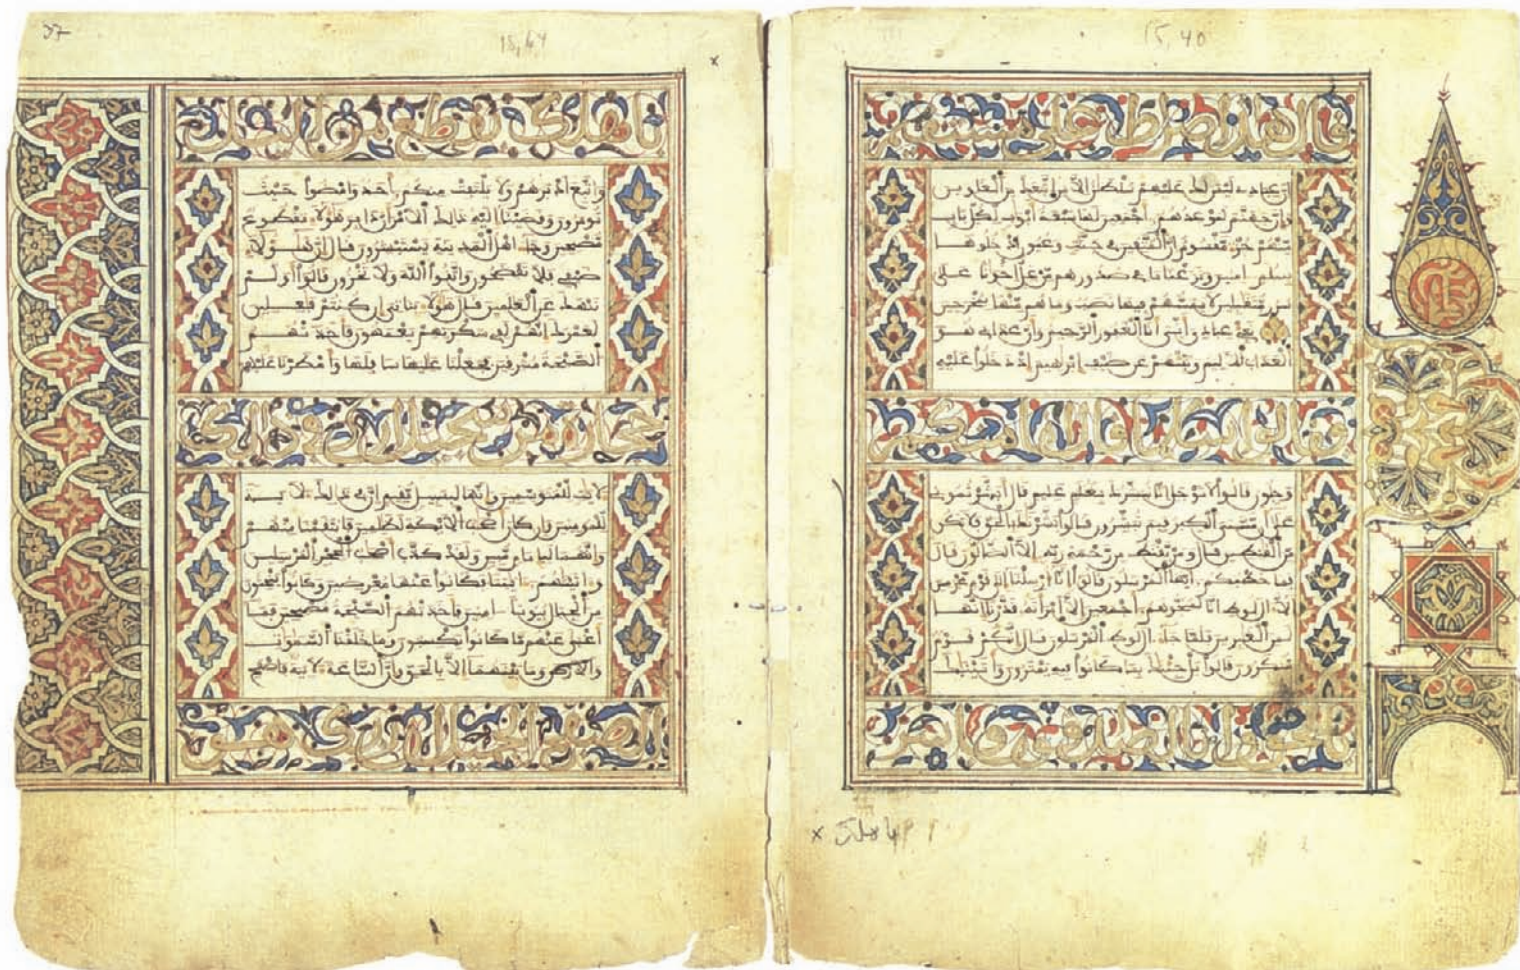 15,40
قال هذا صرط علي مستقيم
ان عبادي ليس لك عليهم سلطن الا من اتبعك من الغاوين
وان جهنم لموعدهم أجمعين لها سبعة أبوب لكل باب
منهم جزء مقسوم ان المتقين في جنت وعيون ادخلوها
بسلم امنين ونزعنا ما في صدورهم من غل اخونا على
سرر متقبلين لا يمسهم فيها نصب وما هم منها بمخرجين
نبئ عبادي أني أنا الغفور الرحيم وأن عذابي هو
العذاب الاليم ونبئهم عن ضيف ابرهيم اذ دخلوا عليه
فقالوا سلما قال انا منكم
وجلون قالوا لا توجل انا نبشرك بغلم عليم قال أبشرتموني
على أن مسني الكبر فبم تبشرون قالوا بشرنك بالحق فلا تكن
من القنطين قال ومن يقنط من رحمة ربه الا الضالون قال
فما خطبكم أيها المرسلون قالوا انا أرسلنا الى قوم مجرمين
الا ال لوط انا لمنجوهم أجمعين الا امرأته قدرنا انها
لمن الغبرين فلما جاء ال لوط المرسلون قال انكم قوم
منكرون قالوا بل جئنك بما كانوا فيه يمترون وأتينك
بالحق وانا لصدقون فاسر
باهلك
37
15,64
باهلك بقطع من اليل
واتبع أدبرهم ولا يلتفت منكم أحد وامضوا حيث
تومرون وقضينا اليه ذلك الأمر أن دابر هولاء مقطوع
مصبحين وجاء اهل المدينة يستبشرون قال ان هولاء
ضيفي فلا تفضحون واتقوا الله ولا تخزون قالوا أولم
ننهك عن العلمين قال هولاء بناتي ان كنتم فعلين
لعمرك انهم لفي سكرتهم يعمهون فأخذتهم
الصيحة مشرقين فجعلنا عليها سافلها وأمطرنا عليهم
حجارة من سجيل ان في ذلك
لايت للمتوسمين وانها لبسبيل مقيم ان في ذلك لاية
للمومنين وان كان أصحب الأيكة لظلمين فانتقمنا منهم
وانهما لبامام مبين ولقد كذب أصحب الحجر المرسلين
واتينهم ايتنا فكانوا عنها معرضين وكانوا ينحتون
من الجبال بيوتا امنين فأخذتهم الصيحة مصبحين فما
أغنى عنهم ما كانوا يكسبون وما خلقنا السموت
والارض وما بينهما الا بالحق وان الساعة لاتية فاصفح
الصفح الجميل ان ربك هو